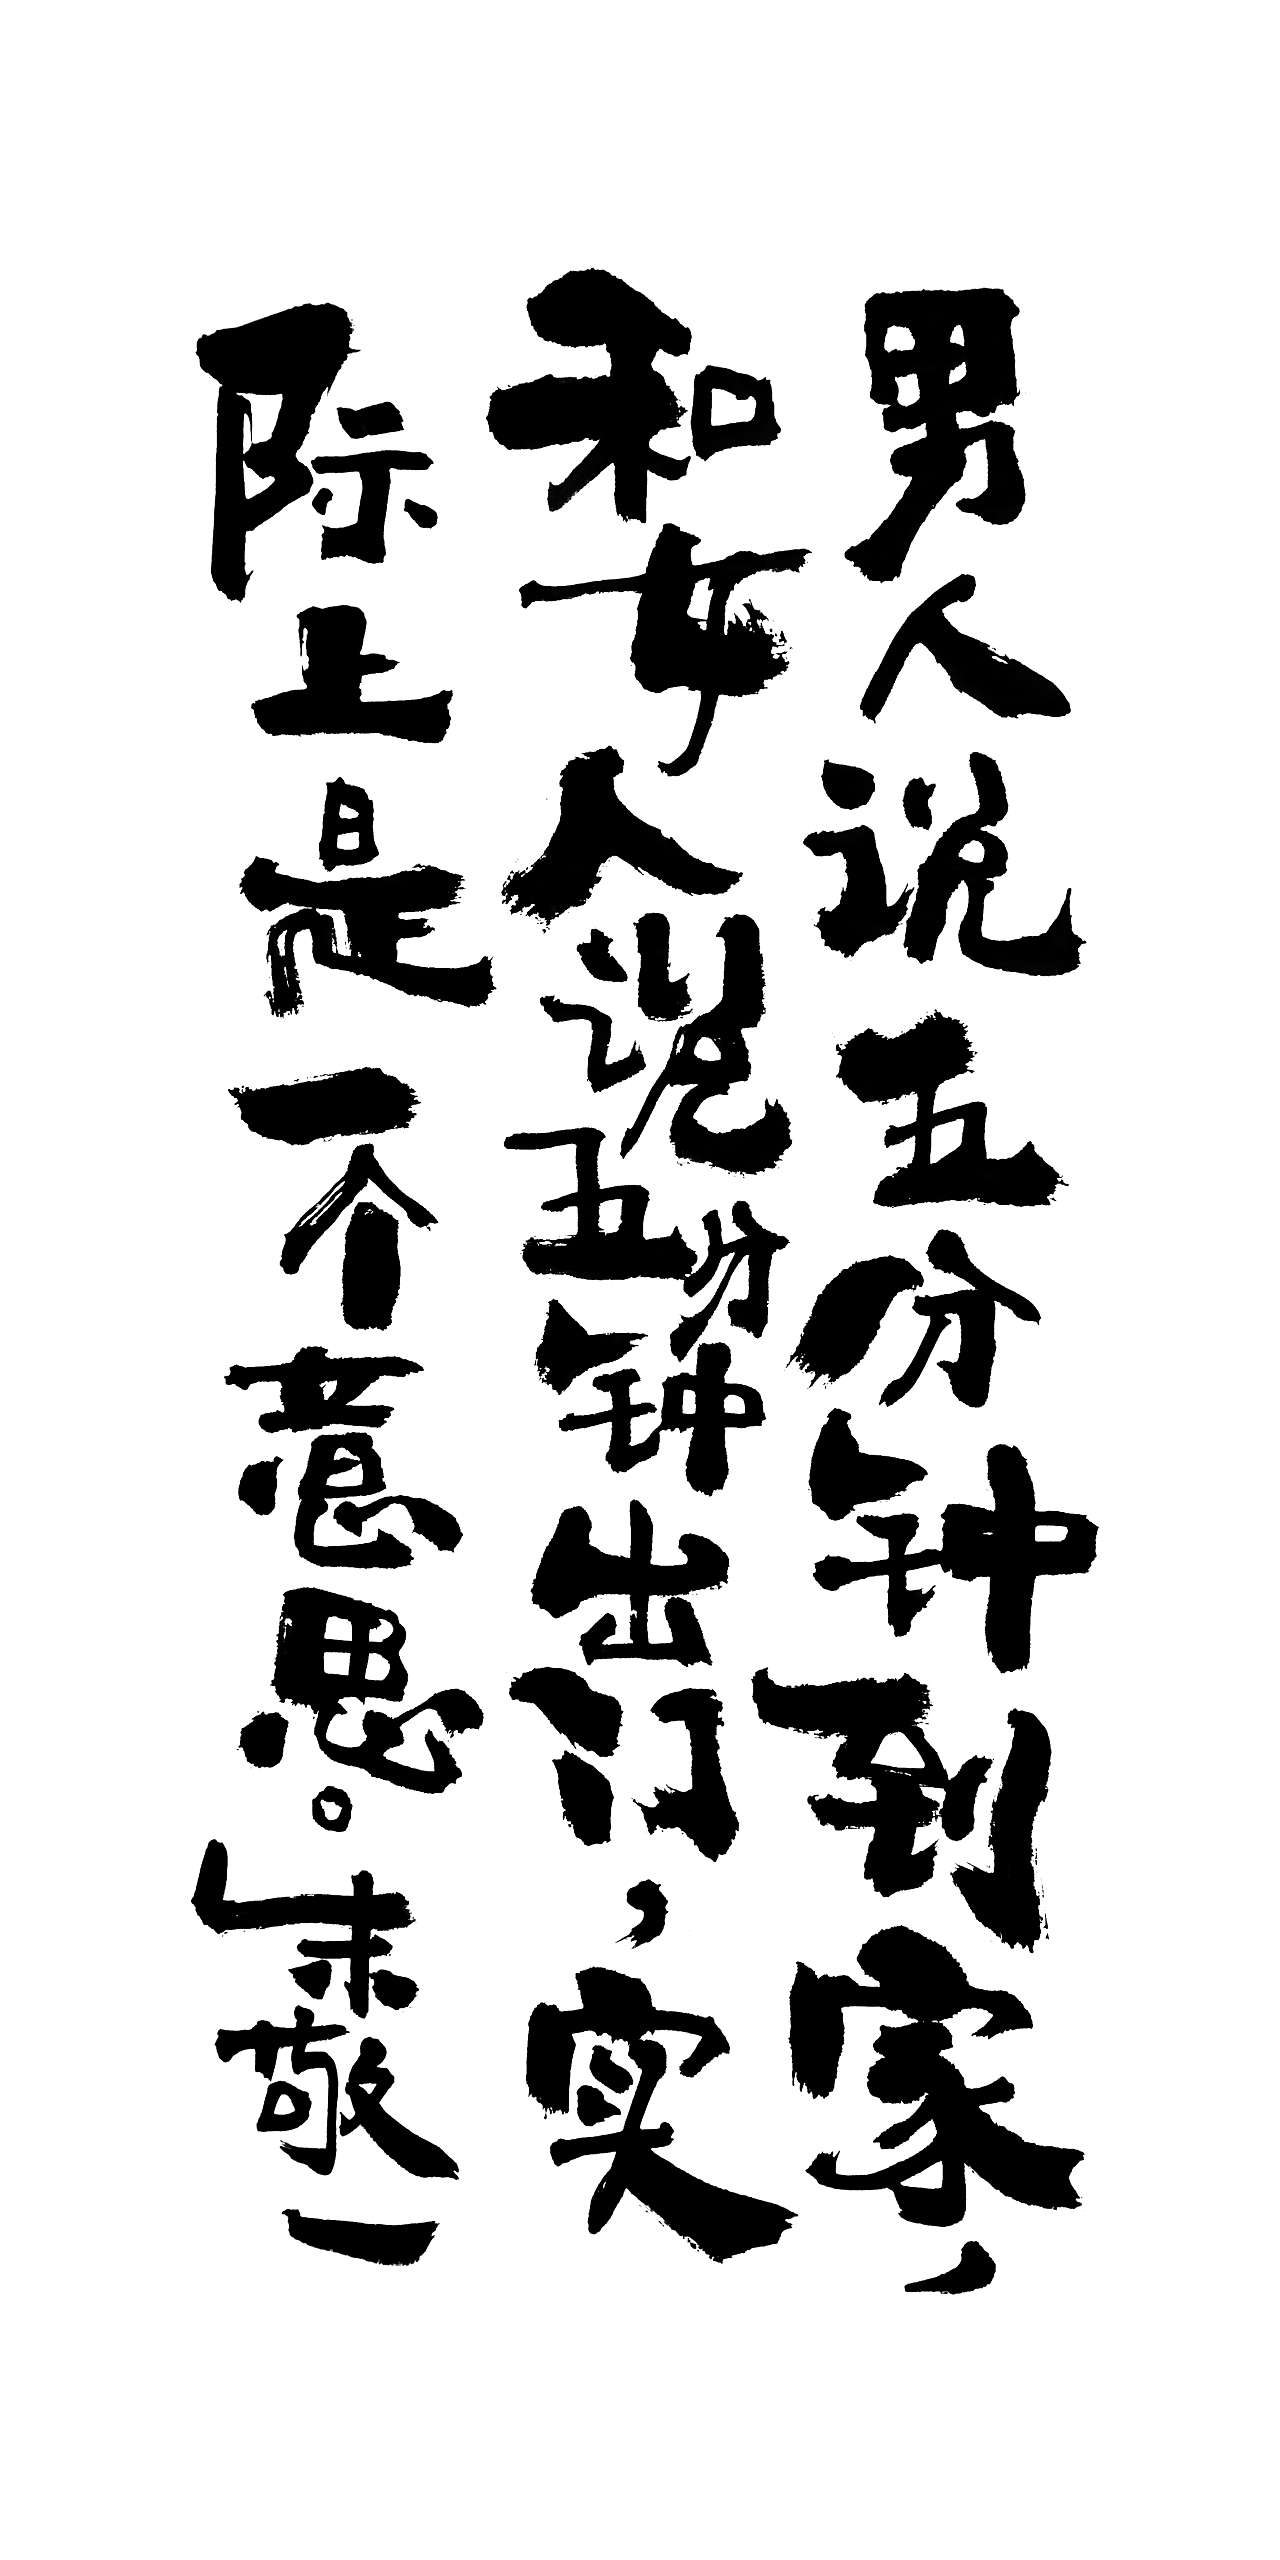 男人说五分钟到家，
和女人说五分钟出门，实
际上是一个意思。朱敬一